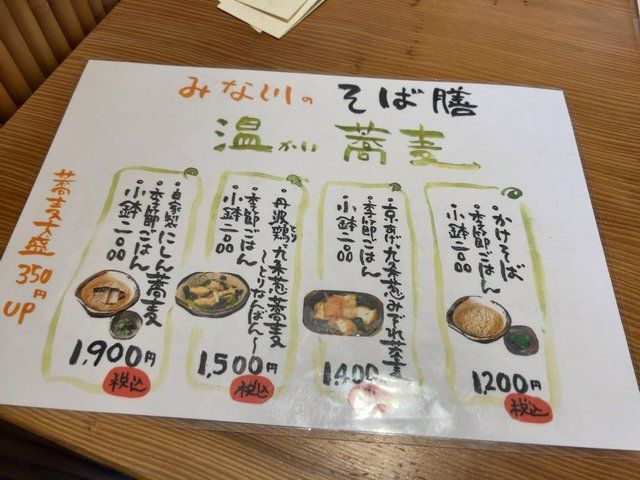 みな川の そば膳
温かい 蕎麦
・かけそば
・季節ごはん
・小鉢二〇〇
1,200円
税込
・京あげ九条葱みぞれ蕎麦
・季節ごはん
・小鉢二〇〇
1,400円
・丹波鶏九条葱蕎麦
とり
〜とりなんばん〜
・季節ごはん
・小鉢二〇〇
1,500円
税込
・自家製にしん蕎麦
・季節ごはん
・小鉢二〇〇
1,900円
税込
蕎麦大盛
350円
UP